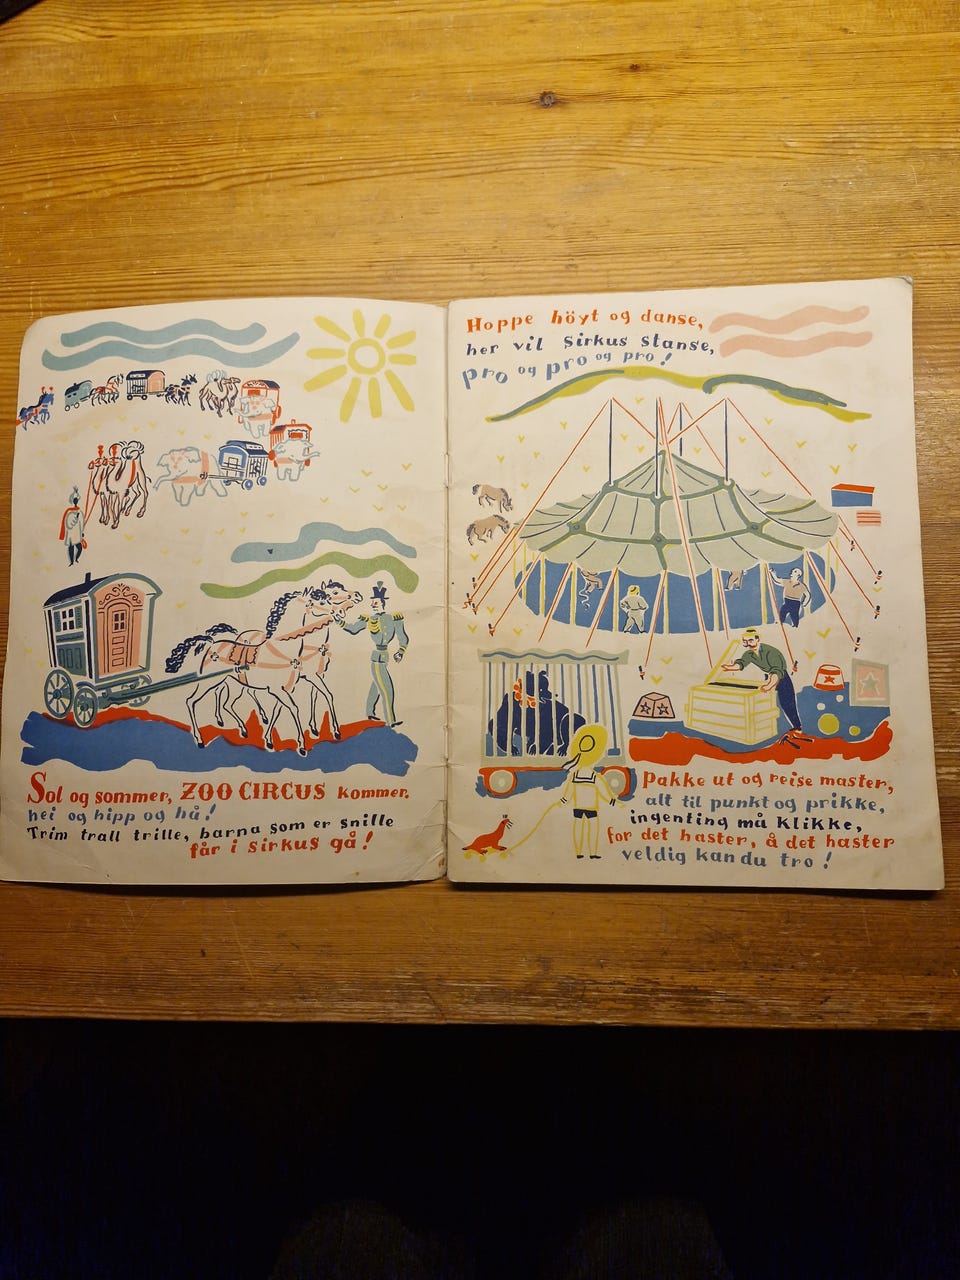 Sol og sommer, ZOO CIRCUS kommer.
hei og hipp og hå!
Trim trall trille, barna som er snille
får i sirkus gå!
Hoppe höyt og danse,
her vil Sirkus stanse,
pro og pro og pro!
Pakke ut og reise master,
alt til punkt og prikke,
ingenting må klikke,
for det haster, å det haster
veldig kan du tro!